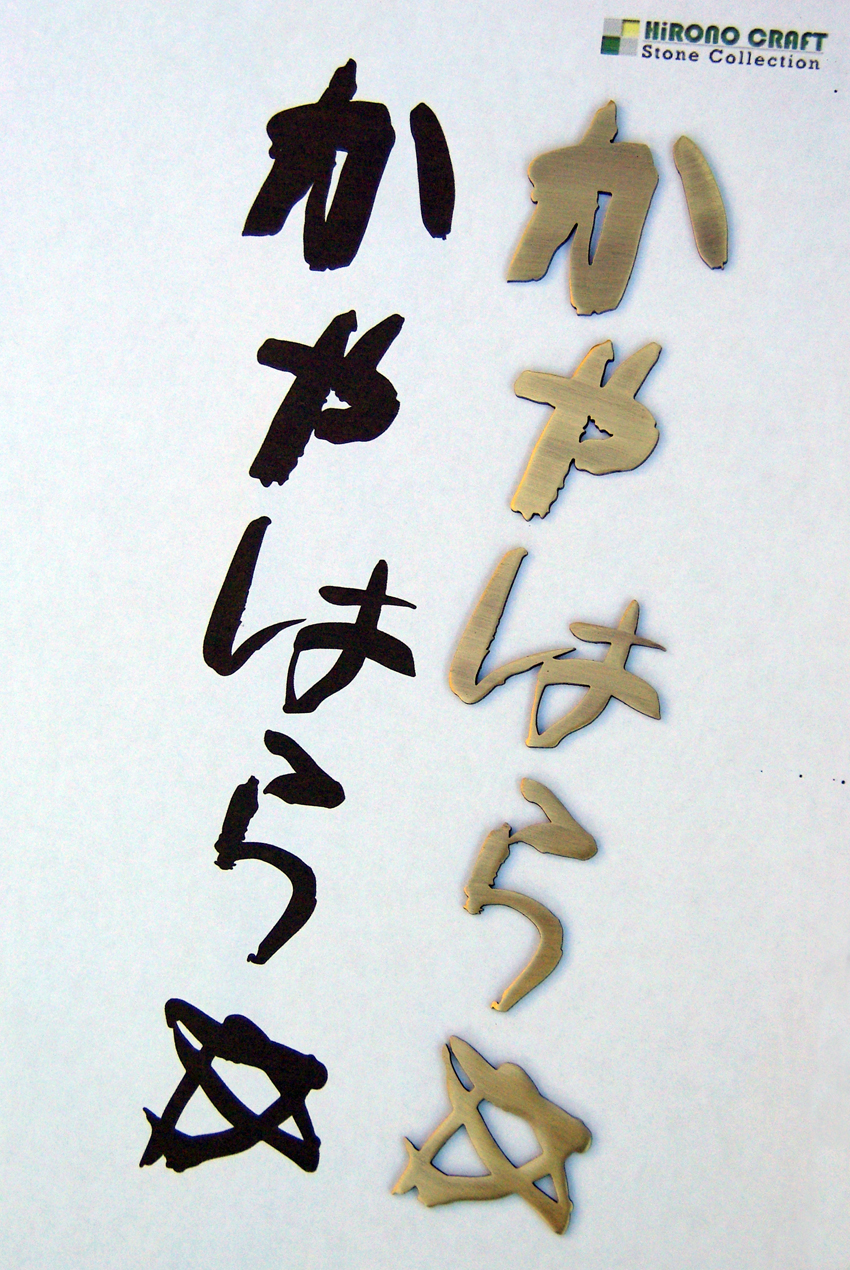 HiRONO CRAFT
Stone Collection
かやはら☆
かやはら☆